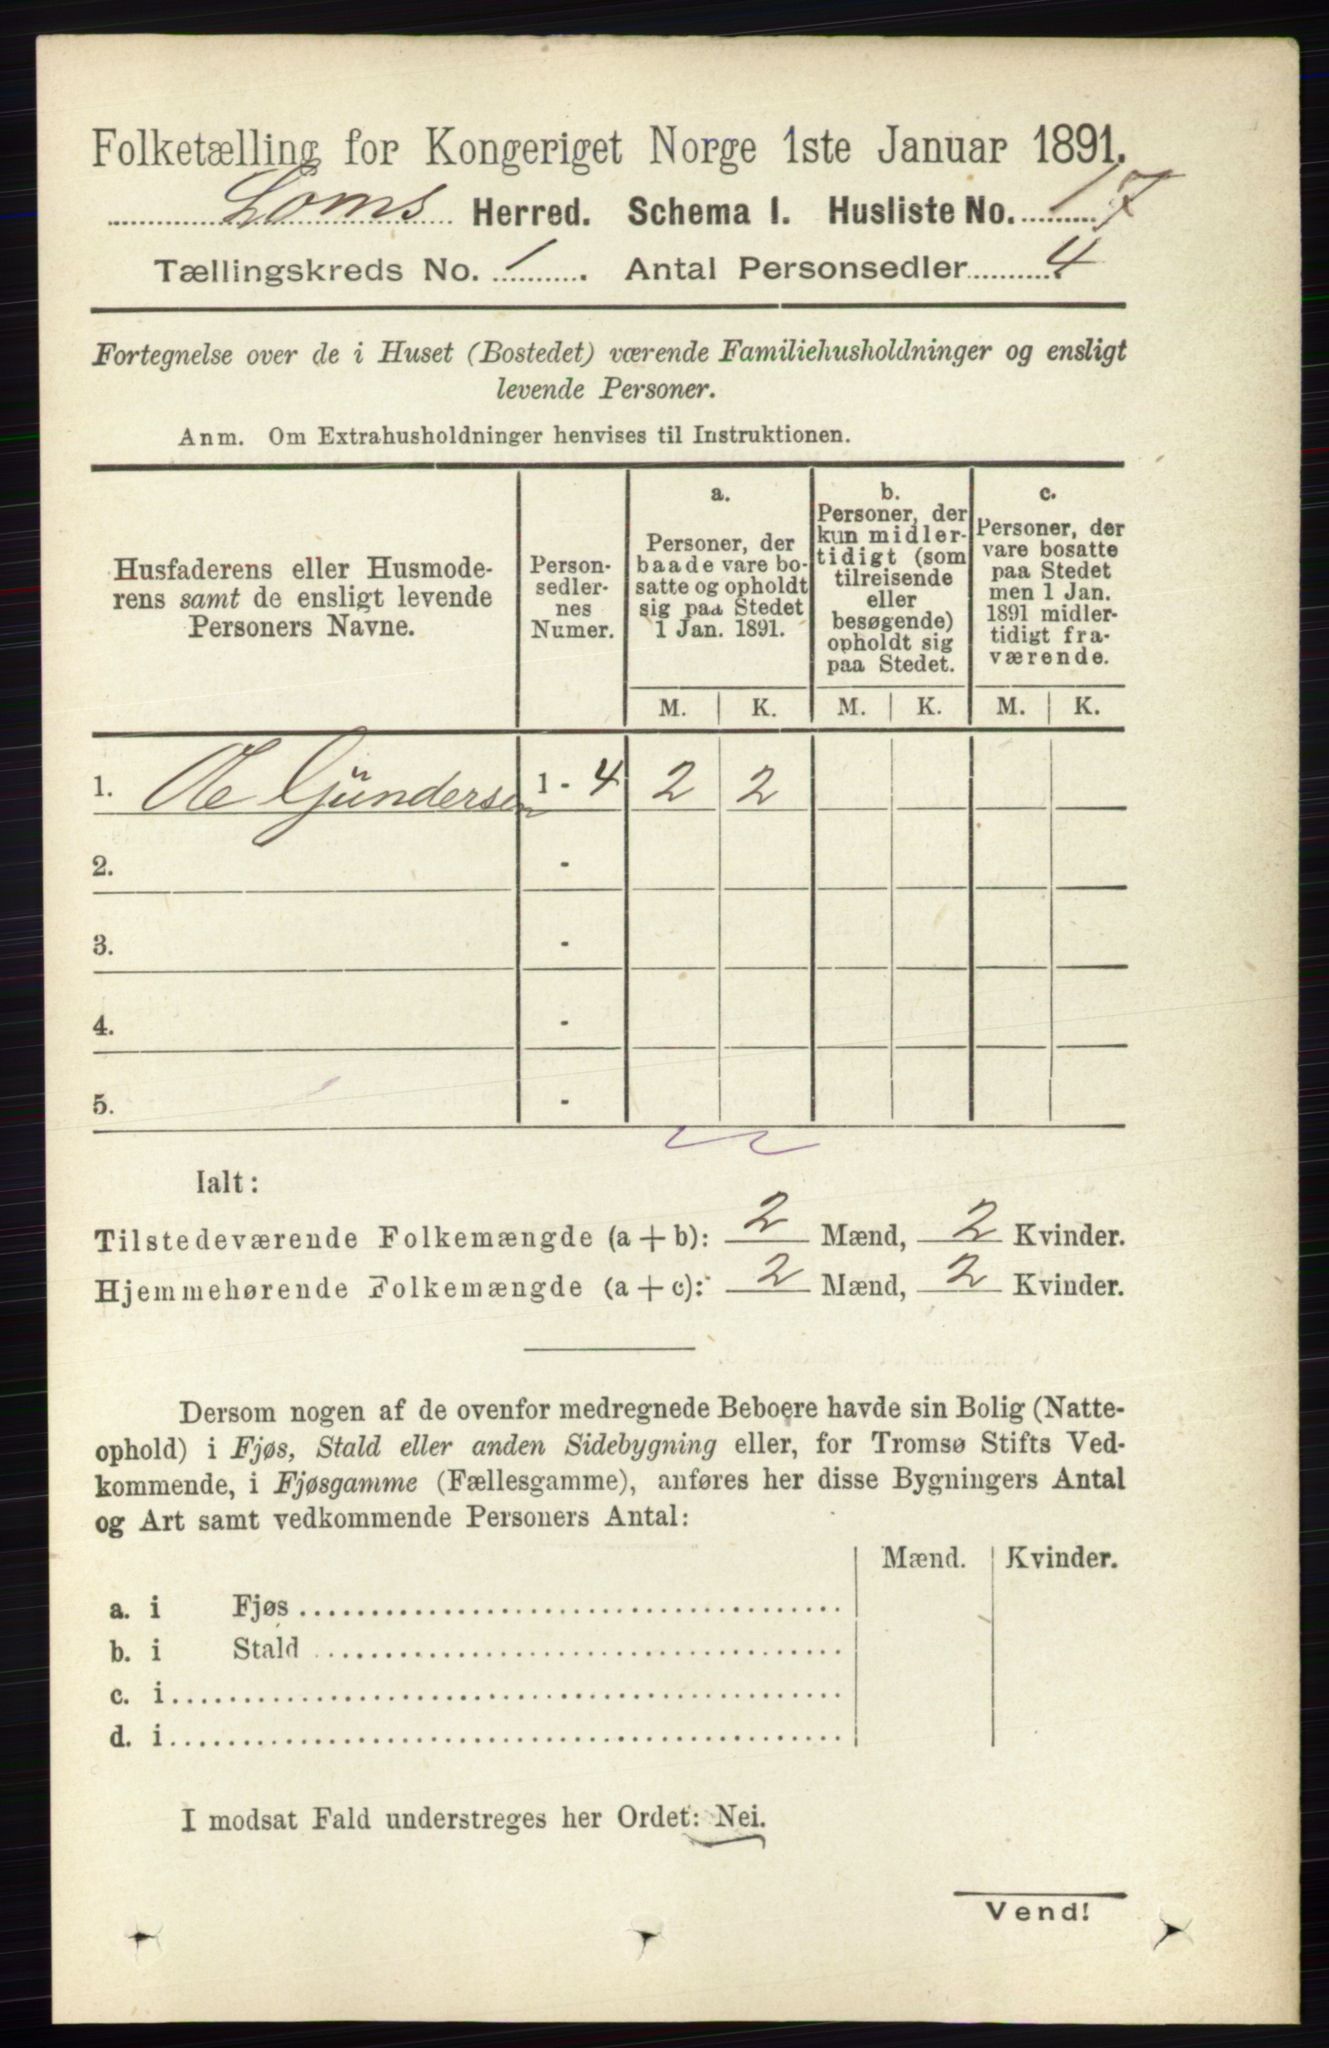 Folketælling for Kongeriget Norge 1ste Januar 1891.
Loms Herred. Schema I. Husliste No. 17
Tællingskreds No. 1. Antal Personsedler 4
Fortegnelse over de i Huset (Bostedet) værende Familiehusholdninger og ensligt
levende Personer.
Anm. Om Extrahusholdninger henvises til Instruktionen.
Husfaderens eller Husmode-
rens samt de ensligt levende
Personers Navne.
Person-
sedler-
nes
Numer.
a.
Personer, der
baade vare bo-
satte og opholdt
sig paa Stedet
1 Jan. 1891.
b.
Personer, der
kun midler-
tidigt (som
tilreisende
eller
besøgende)
opholdt sig
paa Stedet.
c.
Personer, der
vare bosatte
paa Stedet
men 1 Jan.
1891 midler-
tidigt fra-
værende.
M. K. M. K. M. K.
1. Ole Gundersen 1 - 4 2 2
2. -
3. -
4. -
5. -
Ialt:
Tilstedeværende Folkemængde (a + b): 2 Mænd, 2 Kvinder.
Hjemmehørende Folkemængde (a + c): 2 Mænd, 2 Kvinder.
Dersom nogen af de ovenfor medregnede Beboere havde sin Bolig (Natte-
ophold) i Fjøs, Stald eller anden Sidebygning eller, for Tromsø Stifts Ved-
kommende, i Fjøsgamme (Fællesgamme), anføres her disse Bygningers Antal
og Art samt vedkommende Personers Antal:
Mænd. Kvinder.
a. i Fjøs
b. i Stald
c. i
d. i
I modsat Fald understreges her Ordet: Nei.
Vend!